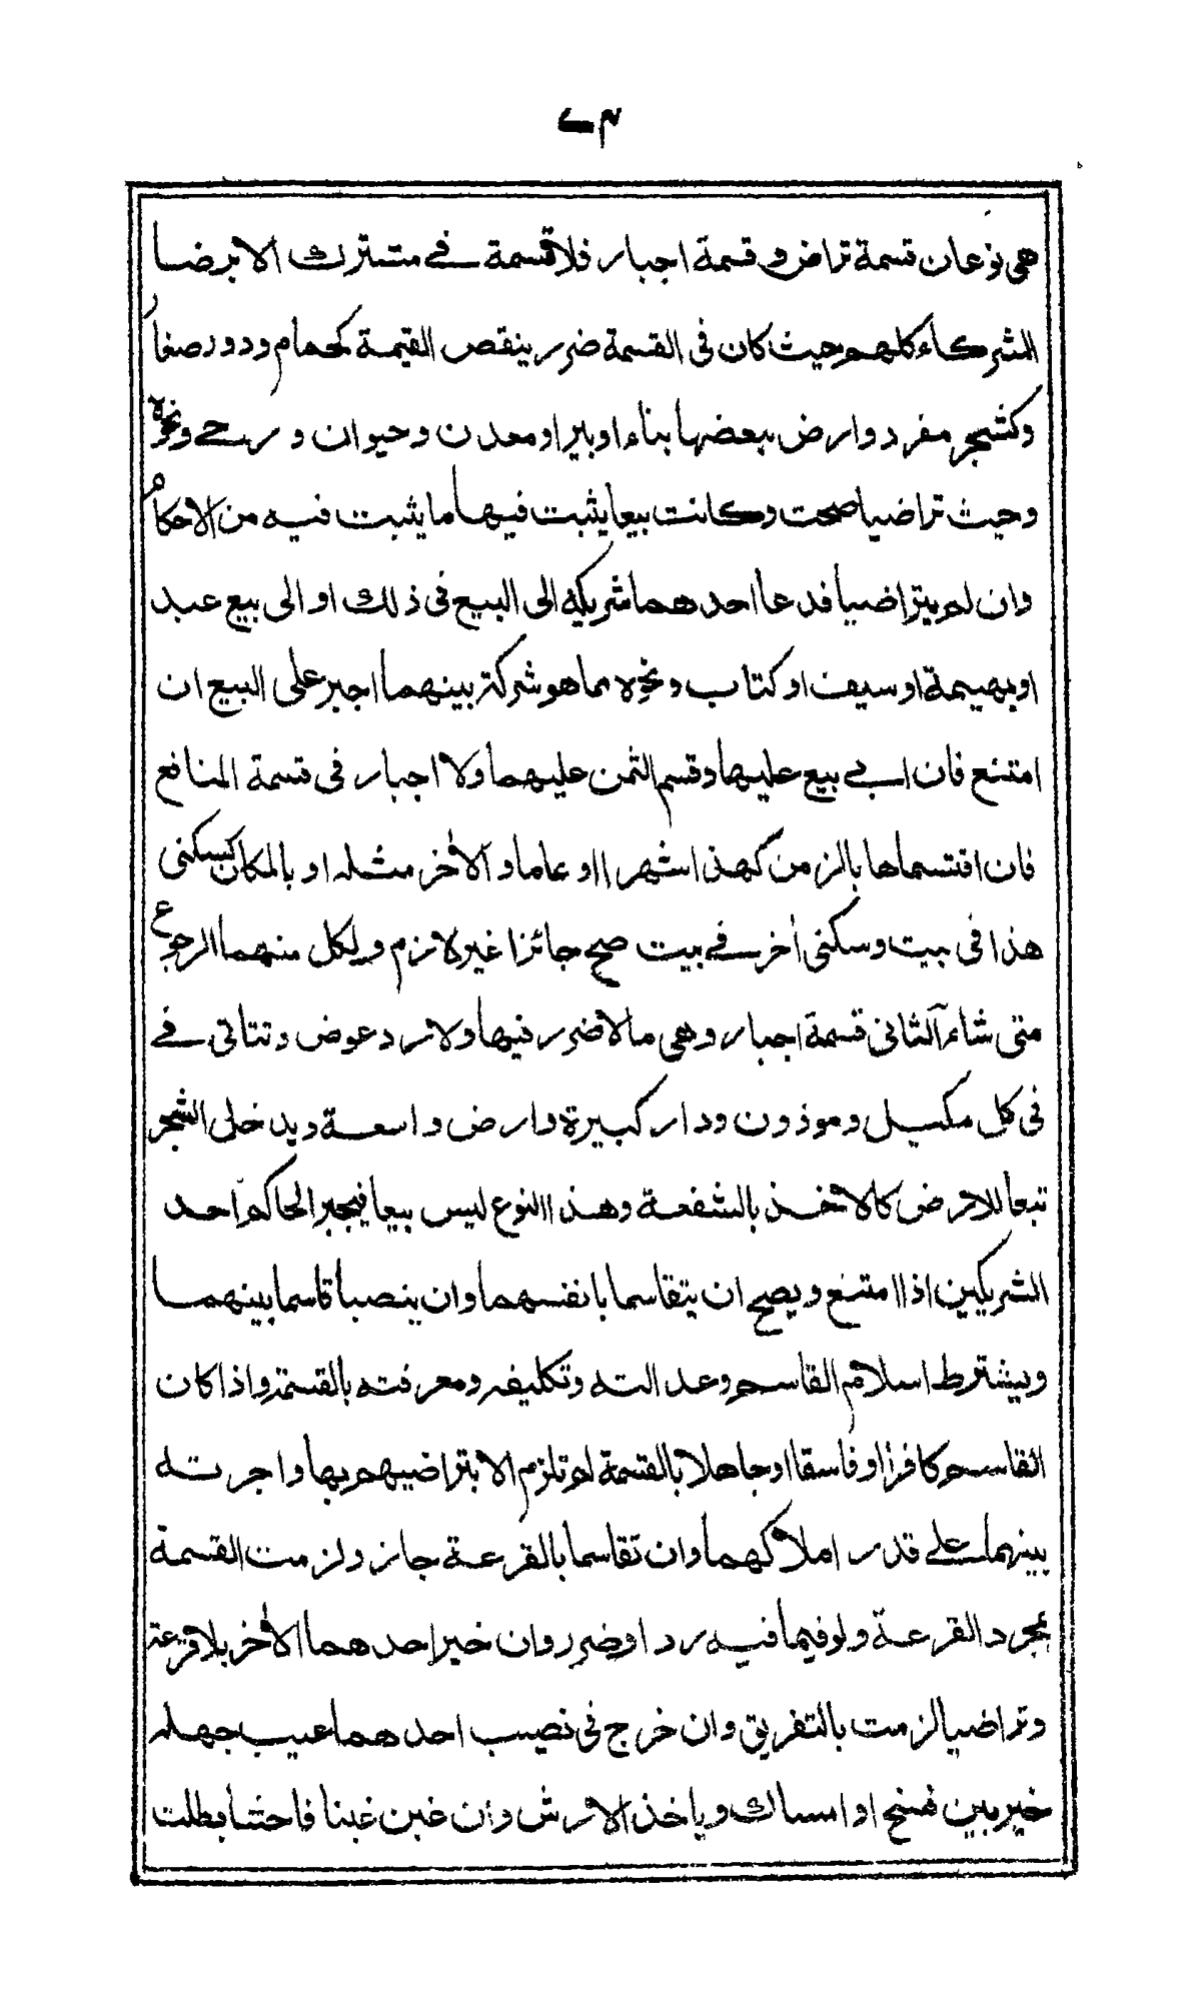 ٧٣
هي نوعان قسمة تراض وقسمة اجبار فلا قسمة في مشترك الا برضا
الشركاء كلهم حيث كان في القسمة ضرر ينقص القيمة كحمام ودور صغار
وكشجر مفرد وارض ببعضها بناء او بير او معدن وحيوان ورحى ونحوه
وحيث تراضيا صحت وكانت بيعا يثبت فيها ما يثبت فيه من الاحكام
وان لم يتراضيا فدعا احدهما شريكه الى البيع في ذلك او الى بيع عبد
او بهيمة او سيف او كتاب ونحوه مما هو شركة بينهما اجبر على البيع ان
امتنع فان ابى بيع عليها وقسم الثمن عليهما ولا اجبار في قسمة المنافع
فان اقتسماها بالزمن كهذا شهرا او عاما والآخر مثله او بالمكان كسكنى
هذا في بيت وسكنى آخر في بيت صح جائزا غير لازم ولكل منهما الرجوع
متى شاء الثاني قسمة اجبار وهي ما لا ضرر فيها ولا رد عوض وتتاتى في
في كل مكيل وموذون ودار كبيرة وارض واسعة ويدخلى الشجر
تبعا للارض كالاخذ بالشفعة وهذا النوع ليس بيعا فيجبر الحاكم احد
الشريكين اذا امتنع ويصح ان يتقاسما بانفسهما وان ينصبا قاسما بينهما
ويشترط اسلام القاسم وعدالته وتكليفه ومعرفته بالقسمة واذا كان
القاسم كافرا او فاسقا او جاهلا بالقسمة لم تلزم الا بتراضيهم بها واجرته
بينهما على قدر املاكهما وان تقاسما بالقرعة جاز ولزمت القسمة
بمجرد القرعة ولو فيما فيه رد او ضرر وان خير احدهما الآخر بلا قرعة
وتراضيا لزمت بالتفريق وان خرج في نصيب احدهما عيب جهله
خير بين فسخ او امساك وياخذ الارش وان غبن غبنا فاحشا بطلت